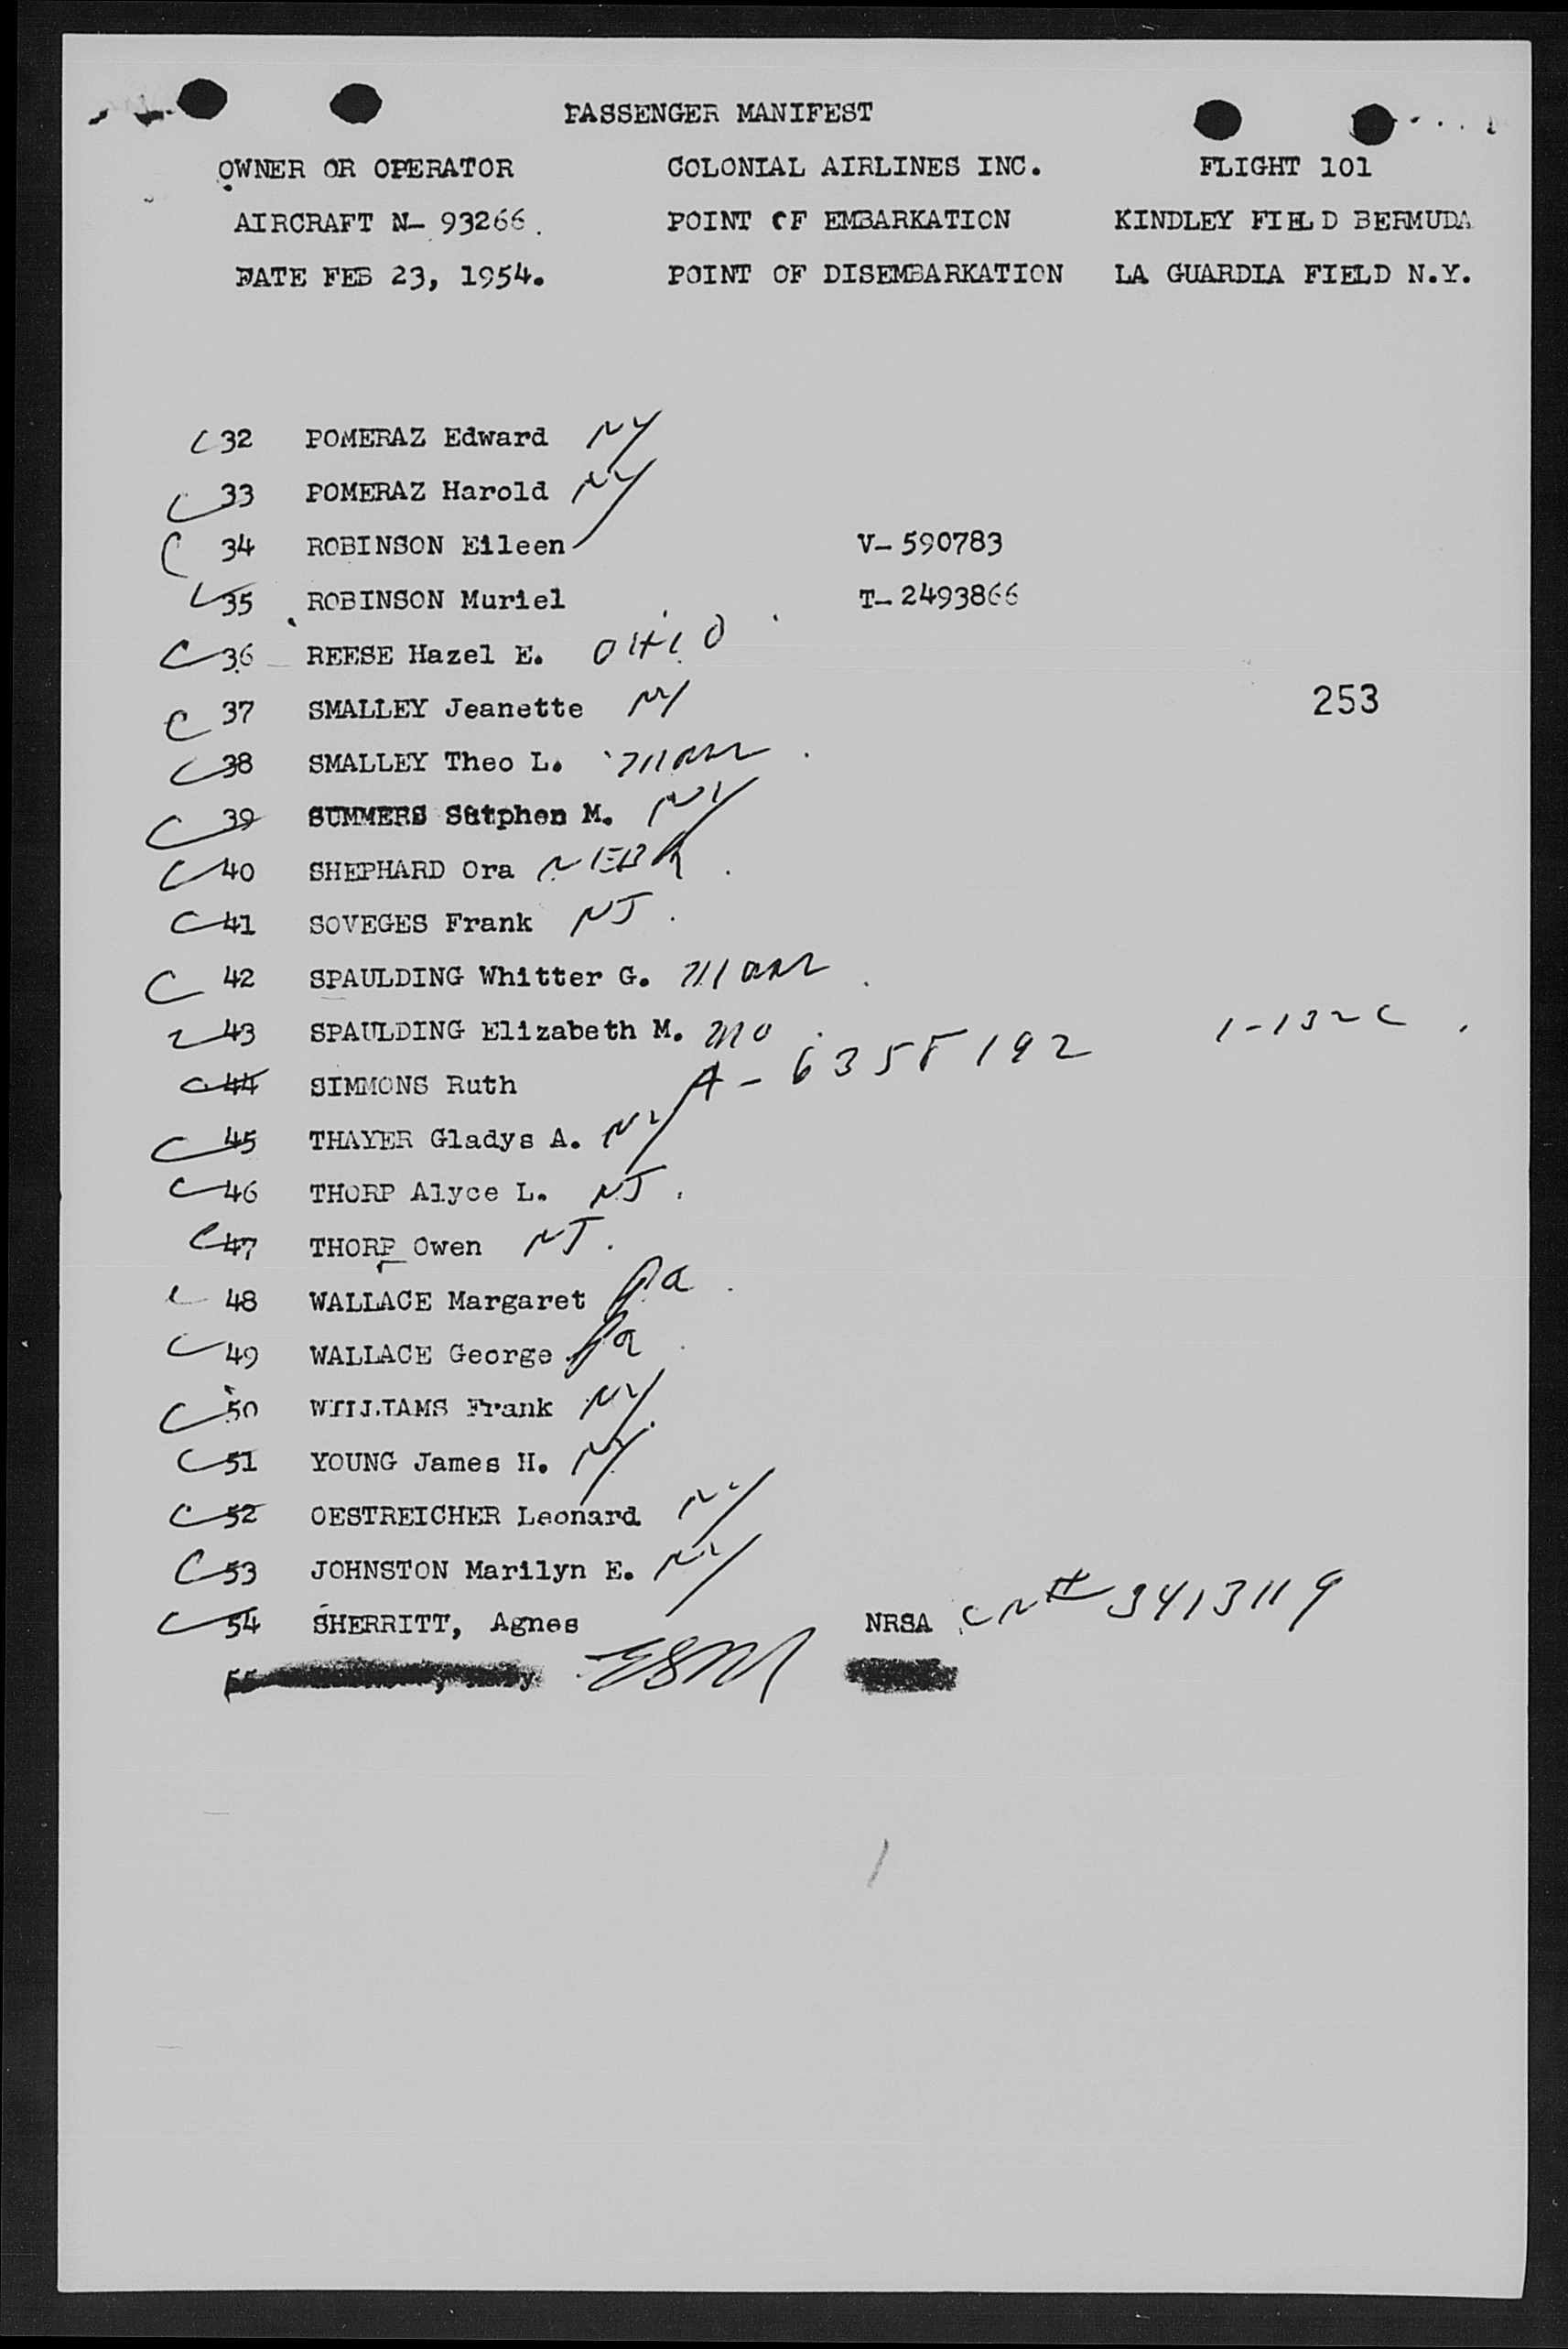 PASSENGER MANIFEST
OWNER OR OPERATOR COLONIAL AIRLINES INC. FLIGHT 101
AIRCRAFT N- 93266. POINT OF EMBARKATION KINDLEY FIELD BERMUDA
DATE FEB 23, 1954. POINT OF DISEMBARKATION LA GUARDIA FIELD N.Y.
C 32 POMERAZ Edward NY
C 33 POMERAZ Harold NY
C 34 ROBINSON Eileen V- 590783
35 ROBINSON Muriel T- 2493866
C 36 REESE Hazel E. OHIO
C 37 SMALLEY Jeanette NY
253
C 38 SMALLEY Theo L. Mass
C 39 SUMMERS Sutphen M. NY
C 40 SHEPHARD Ora NEBR
C 41 SOVEGES Frank NJ
C 42 SPAULDING Whitter G. Mass
43 SPAULDING Elizabeth M. Mo
C 44 SIMMONS Ruth A- 6358192
C 45 THAYER Gladys A. NY
C 46 THORP Alyce L. NJ.
C 47 THORP Owen NJ.
C 48 WALLACE Margaret Pa
C 49 WALLACE George Pa
C 50 WILLIAMS Frank NY
C 51 YOUNG James H. NY
C 52 OESTREICHER Leonard NY
C 53 JOHNSTON Marilyn E. NY
C 54 SHERRITT, Agnes NRSA CN# 3413119